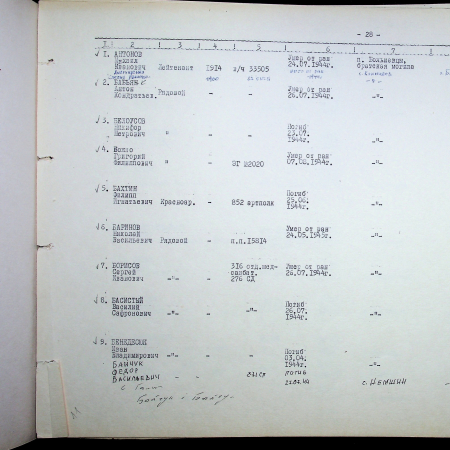 - 28 -
1. 2 1 3 1 4 1 5 1 6 1 7 1
1. АНТОНОВ
Михаил Умер от ран п. Волынянки,
Иванович Лейтенант 1914 в/ч 33505 24.07.1944г. братская могила
2.
Антон Умер от ран
Кондратьев. Рядовой - - 26.07.1944г. -"-
3. БЕЛОУСОВ
Никифор Погиб
Петрович " - - 23.07. -"-
1944г.
4. Божко
Григорий Умер от ран
Филиппович " - ЭГ №2020 07.08.1944г. -"-
5. БАХТИН
Филипп Погиб
Игнатьевич Красноар. - 852 артполк 25.08. -"-
1944г.
6. БАРИНОВ
Николай Умер от ран
Васильевич Рядовой - п.п.15814 24.05.1945г. -"-
7. БОРИСОВ 316 отд.мед- Умер от ран
Сергей санбат.
Иванович -"- - 276 СД 26.07.1944г. -"-
8. БАСИСТЫЙ
Василий Погиб
Сафронович -"- - -"- 26.07. -"-
1944г.
9.
Иван Погиб
Владимирович -"- - - 03.04. -"-
1944г.
БАЙЧУК
ФЕДОР погиб
ВАСИЛЬЕВИЧ - - с. НЕМШИН